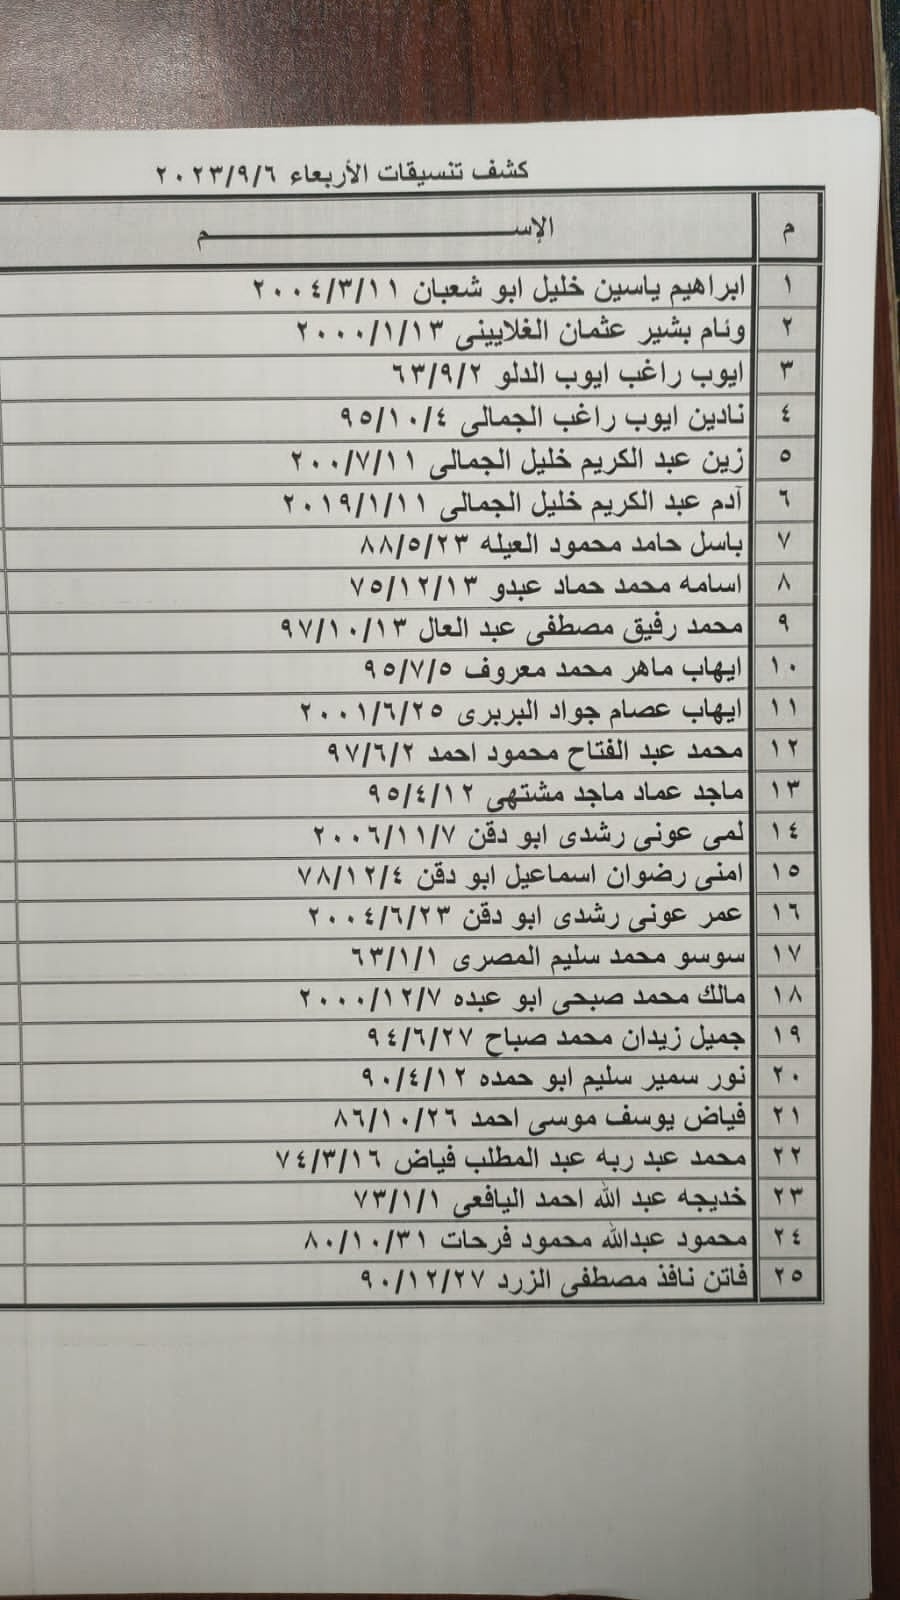 كشف تنسيقات الأربعاء ٢٠٢٣/٩/٦
م الإســـــــــــــــــــــــم
١ ابراهيم ياسين خليل ابو شعبان ٢٠٠٤/٣/١١
٢ وئام بشير عثمان الغلايينى ٢٠٠٠/١/١٣
٣ ايوب راغب ايوب الدلو ٦٣/٩/٢
٤ نادين ايوب راغب الجمالى ٩٥/١٠/٤
٥ زين عبد الكريم خليل الجمالى ٢٠٠/٧/١١
٦ آدم عبد الكريم خليل الجمالى ٢٠١٩/١/١١
٧ باسل حامد محمود العيله ٨٨/٥/٢٣
٨ اسامه محمد حماد عبدو ٧٥/١٢/١٣
٩ محمد رفيق مصطفى عبد العال ٩٧/١٠/١٣
١٠ ايهاب ماهر محمد معروف ٩٥/٧/٥
١١ ايهاب عصام جواد البربرى ٢٠٠١/٦/٢٥
١٢ محمد عبد الفتاح محمود احمد ٩٧/٦/٢
١٣ ماجد عماد ماجد مشتهى ٩٥/٤/١٢
١٤ لمى عونى رشدى ابو دقن ٢٠٠٦/١١/٧
١٥ امنى رضوان اسماعيل ابو دقن ٧٨/١٢/٤
١٦ عمر عونى رشدى ابو دقن ٢٠٠٤/٦/٢٣
١٧ سوسو محمد سليم المصرى ٦٣/١/١
١٨ مالك محمد صبحى ابو عبده ٢٠٠٠/١٢/٧
١٩ جميل زيدان محمد صباح ٩٤/٦/٢٧
٢٠ نور سمير سليم ابو حمده ٩٠/٤/١٢
٢١ فياض يوسف موسى احمد ٨٦/١٠/٢٦
٢٢ محمد عبد ربه عبد المطلب فياض ٧٤/٣/١٦
٢٣ خديجه عبد الله احمد اليافعى ٧٣/١/١
٢٤ محمود عبدالله محمود فرحات ٨٠/١٠/٣١
٢٥ فاتن نافذ مصطفى الزرد ٩٠/١٢/٢٧